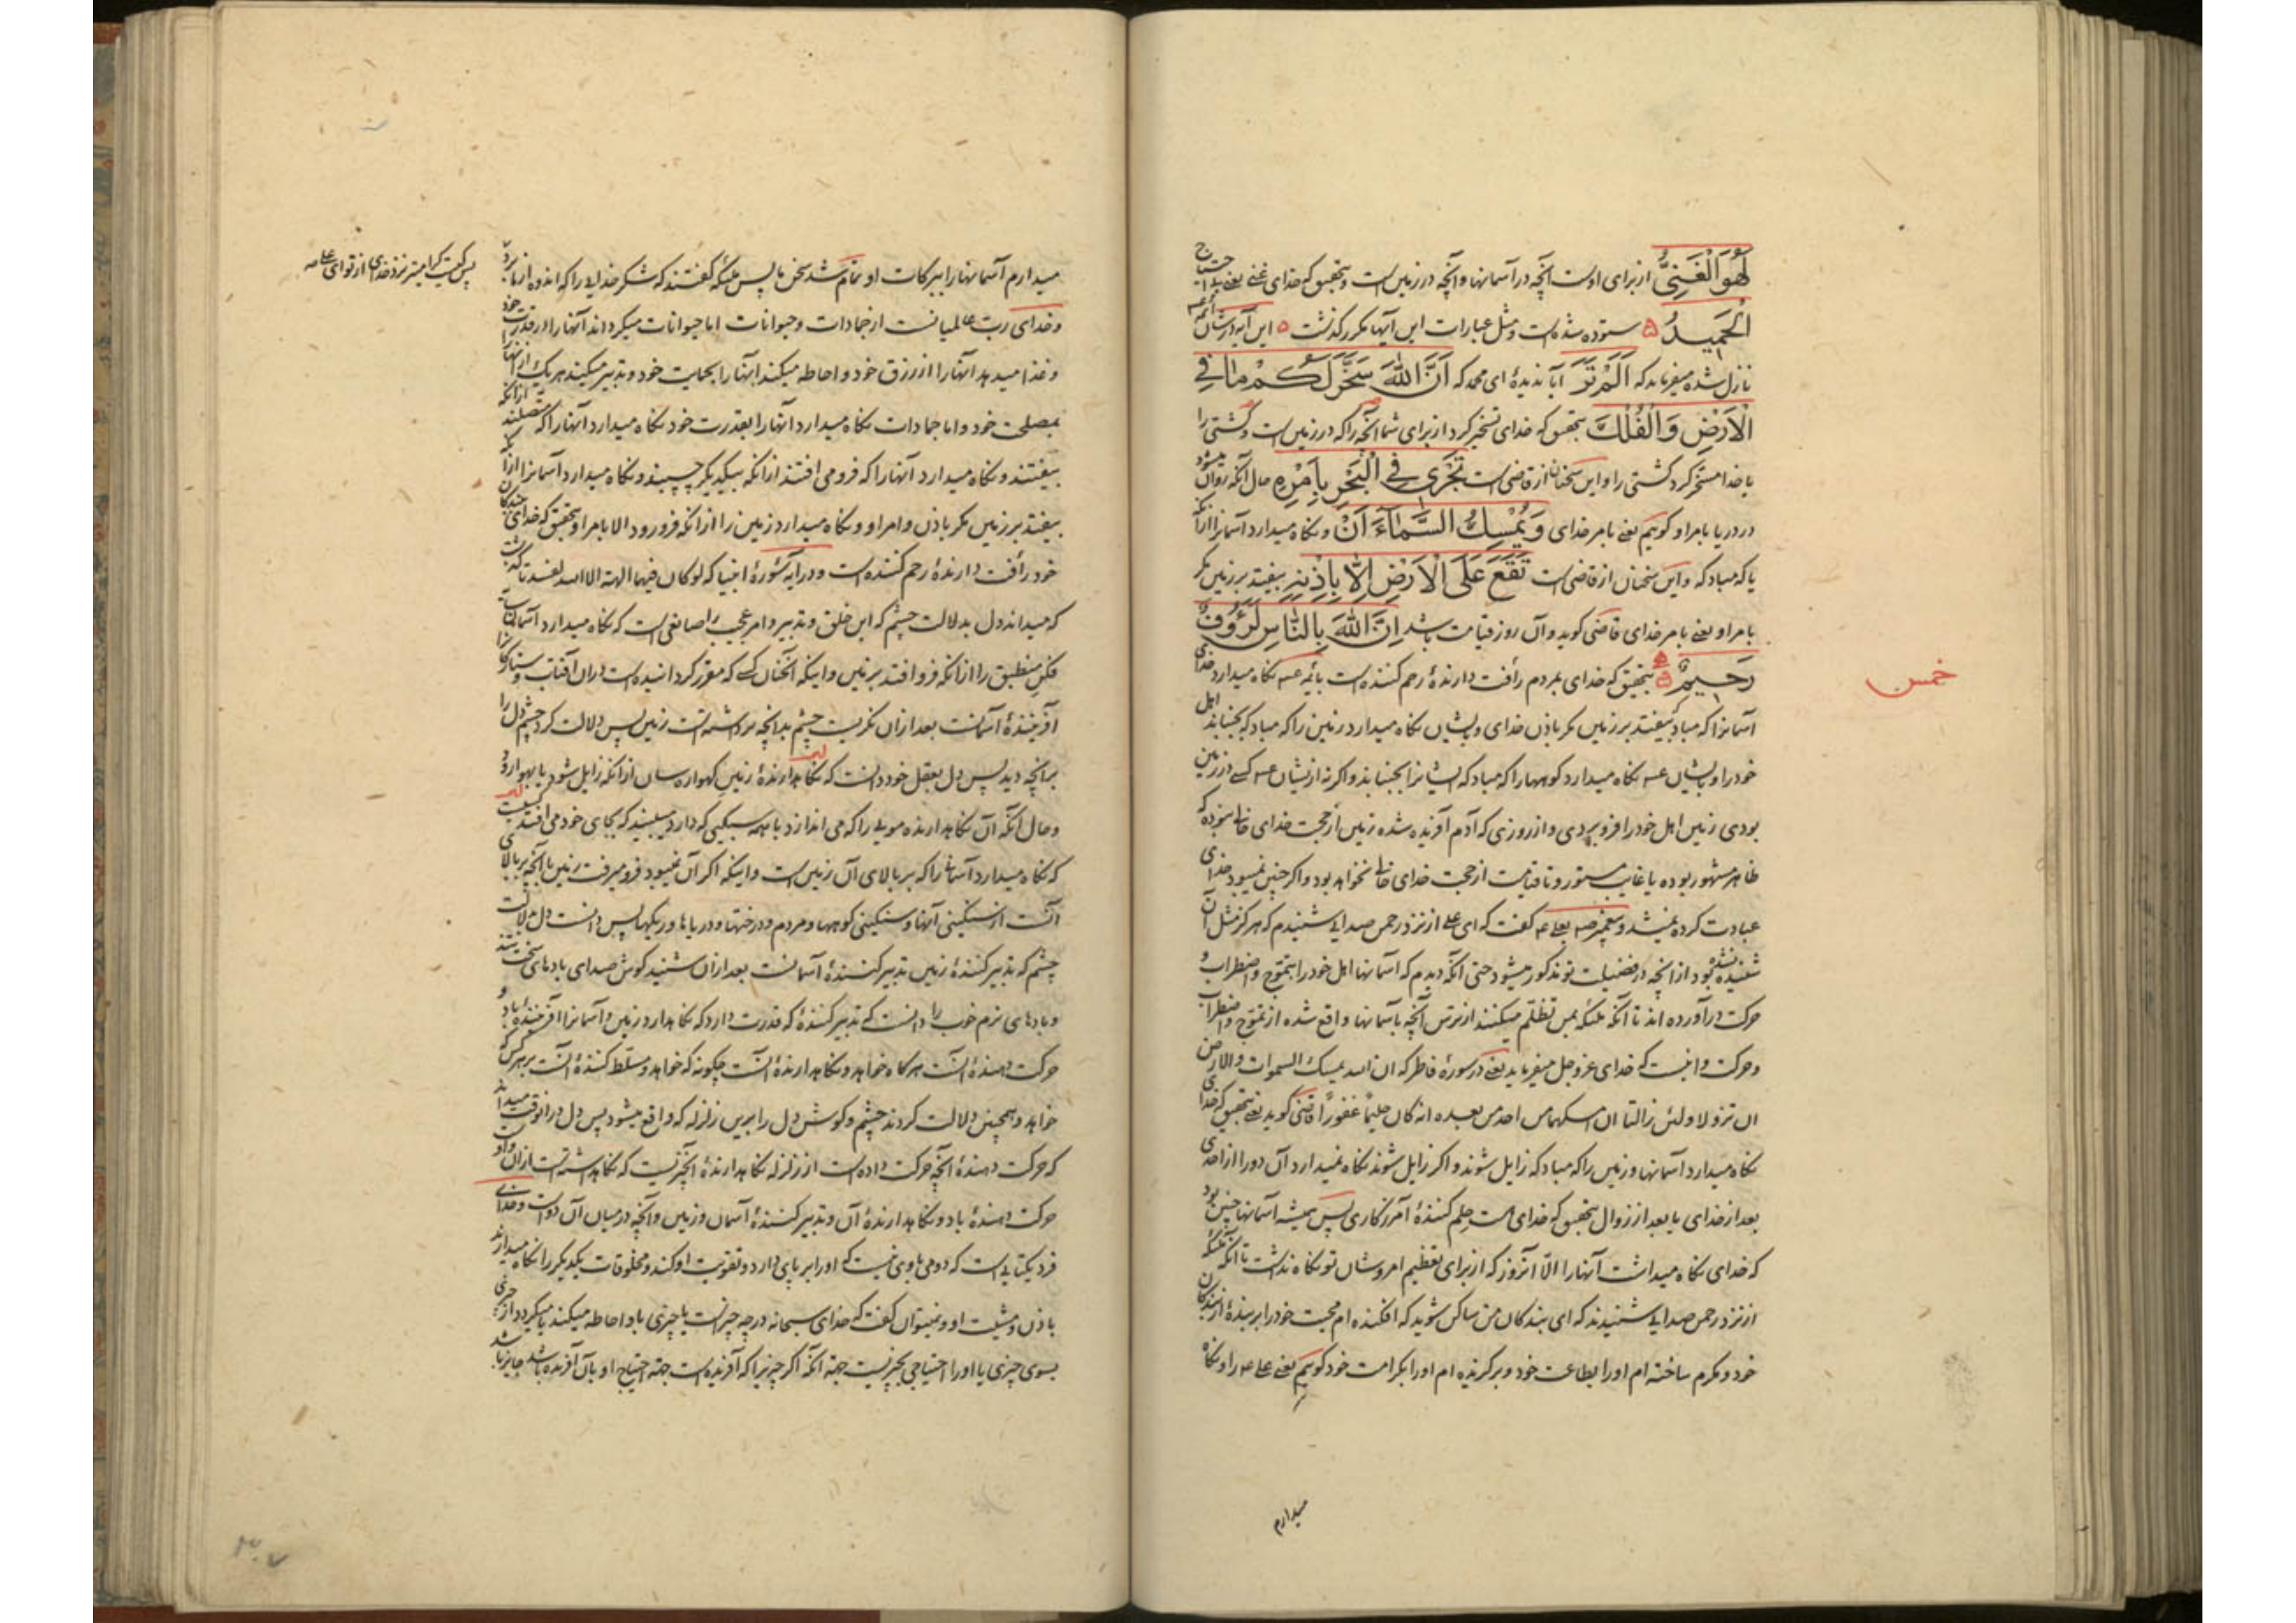 لَهُوَ الْغَنِیُّ از برای اوست آنچه در آسمانها و آنچه در زمین است و بتحقیق که خدای غنی یعنی بی احتیاج
الْحَمِیدُ ستوده شده است و مثل عبارات این آیها مکرر گذشت این آیه در شان ائمه
نازل شده میفرماید که اَلَمْ تَرَ آیا ندیدهٔ ای محمد که اَنَّ اللّٰهَ سَخَّرَ لَکُمْ مٰا فِی
الْاَرْضِ وَالْفُلْكَ بتحقیق که خدای تسخیر کرد از برای شما آنچه را که در زمین است و کشتی را
یا خدا مسخّر کرد کشتی را و این سخنان از قاضی است تَجْرِی فِی الْبَحْرِ بِاَمْرِهِ حال آنکه روان میشود
در دریا بامر او کویم یعنی بامر خدای وَیُمْسِكُ السَّمٰآءَ اَنْ و نکاه میدارد آسمانرا از آنکه
یا که مبادکه و این سخنان از قاضی است تَقَعَ عَلَی الْاَرْضِ اِلّٰا بِاِذْنِهِ بیفتد بر زمین مکر
بامر او یعنی بامر خدای قاضی کوید و آن روز قیامت باشد اِنَّ اللّٰهَ بِالنّٰاسِ لَرَؤُوفٌ
رَحِیمٌ بتحقیق که خدای بمردم رأفت دارندهٔ رحم کننده است بائمه نکاه میدارد خدای
خمس
آسمانرا که مباد بیفتد بر زمین مکر باذن خدای و بایشان نکاه میدارد زمین را که مباد که بجنباند اهل
خود را و بایشان نکاه میدارد کوهها را که مباد که ایشانرا بجنباند و اکر نه از ایشان کسی در زمین
بودی زمین اهل خود را فرو بردی و از روزی که آدم آفریده شده زمین از حجت خدای خالی نبوده که
ظاهر مشهور بوده یا غایب مستور و تا قیامت از حجت خدای خالی نخواهد بود و اکر چنین نمیبود خدای
عبادت کرده نمیشد و پیغمبر گفت که ای علی از نزد رحمن صدایی شنیدم که هرکز مثل آن
شنیده نشده بود از آنچه در فضیلت تو مذکور میشود حتی آنکه دیدم که آسمانها اهل خود را بتموّج و اضطراب و
حرکت درآورده اند تا آنکه ملئکه بمن تظلّم میکنند از ترس آنچه بآسمانها واقع شده از تموّج و اضطراب
و حرکت و اینست که خدای عز و جل میفرماید یعنی در سورهٔ فاطر که ان الله یمسك السموات والارض
ان تزولا ولئن زالتا ان امسکهما من احد من بعده انه کان حلیمًا غفورًا قاضی کوید یعنی بتحقیق که خدای
نکاه میدارد آسمانها و زمین را که مباد که زایل شوند و اکر زایل شوند نکاه نمیدارد آن دو را از احدی
بعد از خدای یا بعد از زوال بتحقیق که خدای هست حلم کنندهٔ آمرزکاری پس همیشه آسمانها چنین بود
که خدای نکاه میداشت آنها را الّا آنروز که از برای تعظیم امر و شان تو نکاه نداشت تا آنکه ملئکه
از نزد رحمن صدایی شنیدند که ای بندکان من ساکن شوید که افکنده ام محبت خود را بر بندهٔ از بندکان
خود و مکرم ساخته ام او را بطاعت خود و برکزیده ام او را بکرامت خود کویم یعنی علی را و نکاه
میدارم
میدارم آسمانها را ببرکات او تمام شد سخن ما پس ملئکه گفتند که شکر خدایی را که اندوه از ما برد
پس کیست کرامیتر نزد خدای از تو ای علی
و خدای ربّ عالمیانست از جمادات و حیوانات اما حیوانات میکرداند آنها را در قدرت خود
و غذا میدهد آنها را از رزق خود و احاطه میکند آنها را بحمایت خود و تدبیر میکند هر یك از آنها را
بمصلحت خود و اما جمادات نکاه میدارد آنها را بقدرت خود نکاه میدارد آنها را که متصلند از آنکه
بیفتند و نکاه میدارد آنها را که فرو می افتند از آنکه بیکدیکر چسبند و نکاه میدارد آسمانرا از آنکه
بیفتد بر زمین مکر باذن و امر او و نکاه میدارد زمین را از آنکه فرو رود الا بامر او بتحقیق که خدای ببندکان
خود رأفت دارندهٔ رحم کننده است و در آیه سورهٔ انبیا که لو کان فیهما الهة الا الله لفسدتا کذشت
که میداند دل بدلالت چشم که این خلق و تدبیر و امر عجیب را صانعی است که نکاه میدارد آسمان
فلك منطبق را از آنکه فرو افتد بر زمین و اینکه آنچنان کسی که مقرر کردانیده است در آن آفتاب و ستارکانرا
آفرینندهٔ آسمانست بعد از آن نکریست چشم بدانچه برداشته است زمین پس دلالت کرد چشم دل را
بر آنچه دید پس دل بعقل خود دانست که نکاهدارندهٔ زمین کهواره سان از آنکه زایل شود یا بهوا رود
و حال آنکه آن نکاهدارنده مویی را که می اندازد با همه سبکیی که دارد میبیند که بجای خود می افتد
که نکاه میدارد آسمان را که بر بالای آن زمین است و اینکه اکر آن نمیبود فرو میرفت زمین با آنچه بر بالای
آنست از سنکینی آنها و سنکینی کوهها و مردم و درختها و دریاها و ریکها پس دانست دل بدلالت
چشم که تدبیر کنندهٔ زمین تدبیر کنندهٔ آسمانست بعد از آن شنید کوش صدای بادهای سخت تند
و بادهای نرم خوب را دانست که تدبیر کنندهٔ که قدرت دارد که نکاهدارد زمین و آسمانرا آفرینندهٔ باد و
حرکت دهندهٔ آنست هرکاه خواهد و نکاهدارندهٔ آنست چکونه که خواهد و مسلّط کنندهٔ آنست بر هر کس که
خواهد و همچنین دلالت کردند چشم و کوش دل را برین زلزله که واقع میشود پس دل در آنوقت میداند
که حرکت دهندهٔ آنچه حرکت داده است از زلزله نکاهدارندهٔ آنچیزیست که نکاهداشته است از آن و او
حرکت دهندهٔ باد و نکاهدارندهٔ آن و تدبیر کنندهٔ آسمان و زمین و آنچه در میان آن دو است و خدای
فرد یکتایی است که دومی با وی نیست که او را بر پای دارد و تقویت او کند و مخلوقات یکدیکر را نکاه میدارند
باذن و مشیت او و نمیتوان گفت که خدای سبحانه در چه چیز است یا چیزی باو احاطه میکند یا میکردد از چیزی
بسوی چیزی یا او را احتیاجی بچیزیست جهة آنکه اکر چیزیرا که آفریده است جهة احتیاج او بآن آفریده باشد جایز باشد
۳۰۷